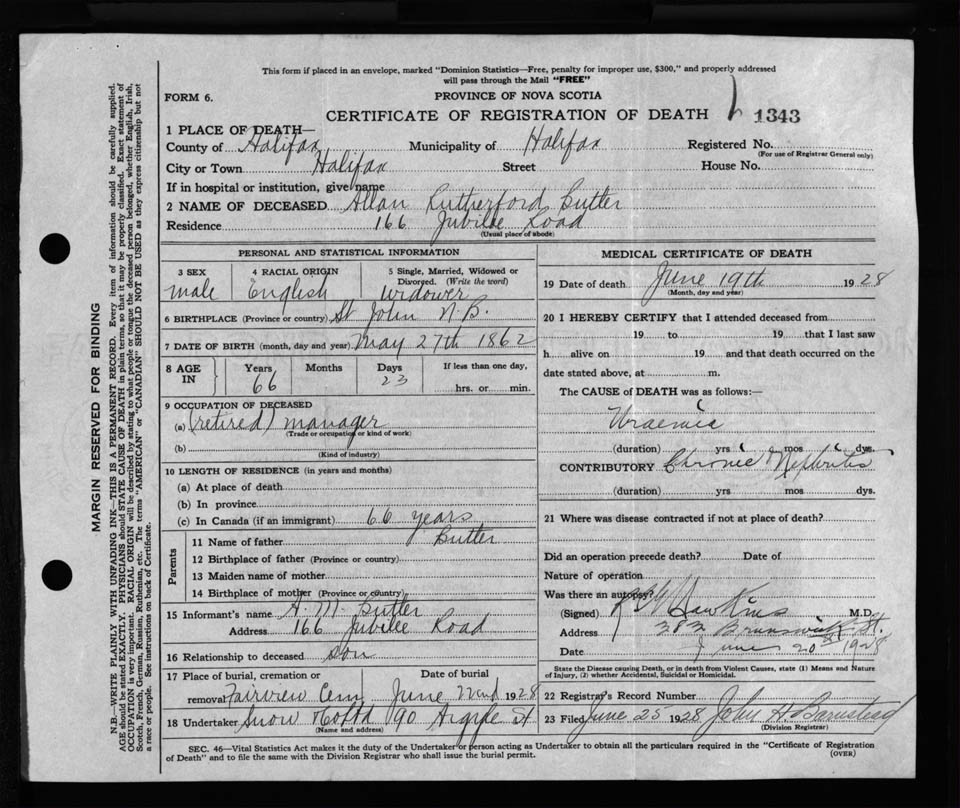 This form if placed in an envelope, marked "Dominion Statistics—Free, penalty for improper use, $300," and properly addressed
will pass through the Mail "FREE"
FORM 6.
PROVINCE OF NOVA SCOTIA
CERTIFICATE OF REGISTRATION OF DEATH
1343
1 PLACE OF DEATH—
County of Halifax Municipality of Halifax Registered No.
(For use of Registrar General only)
City or Town Halifax Street House No.
If in hospital or institution, give name
2 NAME OF DECEASED Allan Rutherford Butler
Residence 166 Jubilee Road
(Usual place of abode)
PERSONAL AND STATISTICAL INFORMATION
3 SEX 4 RACIAL ORIGIN 5 Single, Married, Widowed or Divorced. (Write the word)
male English widower
6 BIRTHPLACE (Province or country) St John N.B.
7 DATE OF BIRTH (month, day and year) May 27th 1862
8 AGE IN Years Months Days If less than one day,
66 23 hrs. or min.
9 OCCUPATION OF DECEASED
(a) (retired) manager
(Trade or occupation or kind of work)
(b)
(Kind of industry)
10 LENGTH OF RESIDENCE (in years and months)
(a) At place of death
(b) In province
(c) In Canada (if an immigrant) 66 years
Parents
11 Name of father Butler
12 Birthplace of father (Province or country)
13 Maiden name of mother
14 Birthplace of mother (Province or country)
15 Informant's name A. M. Butler
Address 166 Jubilee Road
16 Relationship to deceased Son
17 Place of burial, cremation or removal Date of burial
Fairview Cem June 22nd 1928
18 Undertaker Snow & Co Ltd 90 Argyle St
(Name and address)
MEDICAL CERTIFICATE OF DEATH
19 Date of death June 19th 1928
(Month, day and year)
20 I HEREBY CERTIFY that I attended deceased from
19 to 19 that I last saw
h alive on 19 and that death occurred on the
date stated above, at m.
The CAUSE of DEATH was as follows:
Uraemia
(duration) yrs mos dys.
CONTRIBUTORY Chronic Nephritis
(duration) yrs mos dys.
21 Where was disease contracted if not at place of death?
Did an operation precede death? Date of
Nature of operation
Was there an autopsy?
(Signed) Hawkins M.D.
Address 383 Brunswick St.
Date June 20th 1928
State the Disease causing Death, or in death from Violent Causes, state (1) Means and Nature
of Injury, (2) whether Accidental, Suicidal or Homicidal.
22 Registrar's Record Number
23 Filed June 25 1928 John H. Barnstead
(Division Registrar)
SEC. 46—Vital Statistics Act makes it the duty of the Undertaker or person acting as Undertaker to obtain all the particulars required in the "Certificate of Registration
of Death" and to file the same with the Division Registrar who shall issue the burial permit.
(OVER)
MARGIN RESERVED FOR BINDING
N.B.—WRITE PLAINLY WITH UNFADING INK—THIS IS A PERMANENT RECORD. Every item of information should be carefully supplied.
AGE should be stated EXACTLY. PHYSICIANS should STATE CAUSE OF DEATH in plain terms, so that it may be properly classified. Exact statement of
OCCUPATION is very important. RACIAL ORIGIN will be described by stating to what people or tongue the deceased person belonged, whether English, Irish,
Scotch, French, German, Russian, Ruthenian, etc. The terms "AMERICAN" or "CANADIAN" SHOULD NOT BE USED as they express citizenship but not
a race or people. See instructions on back of Certificate.